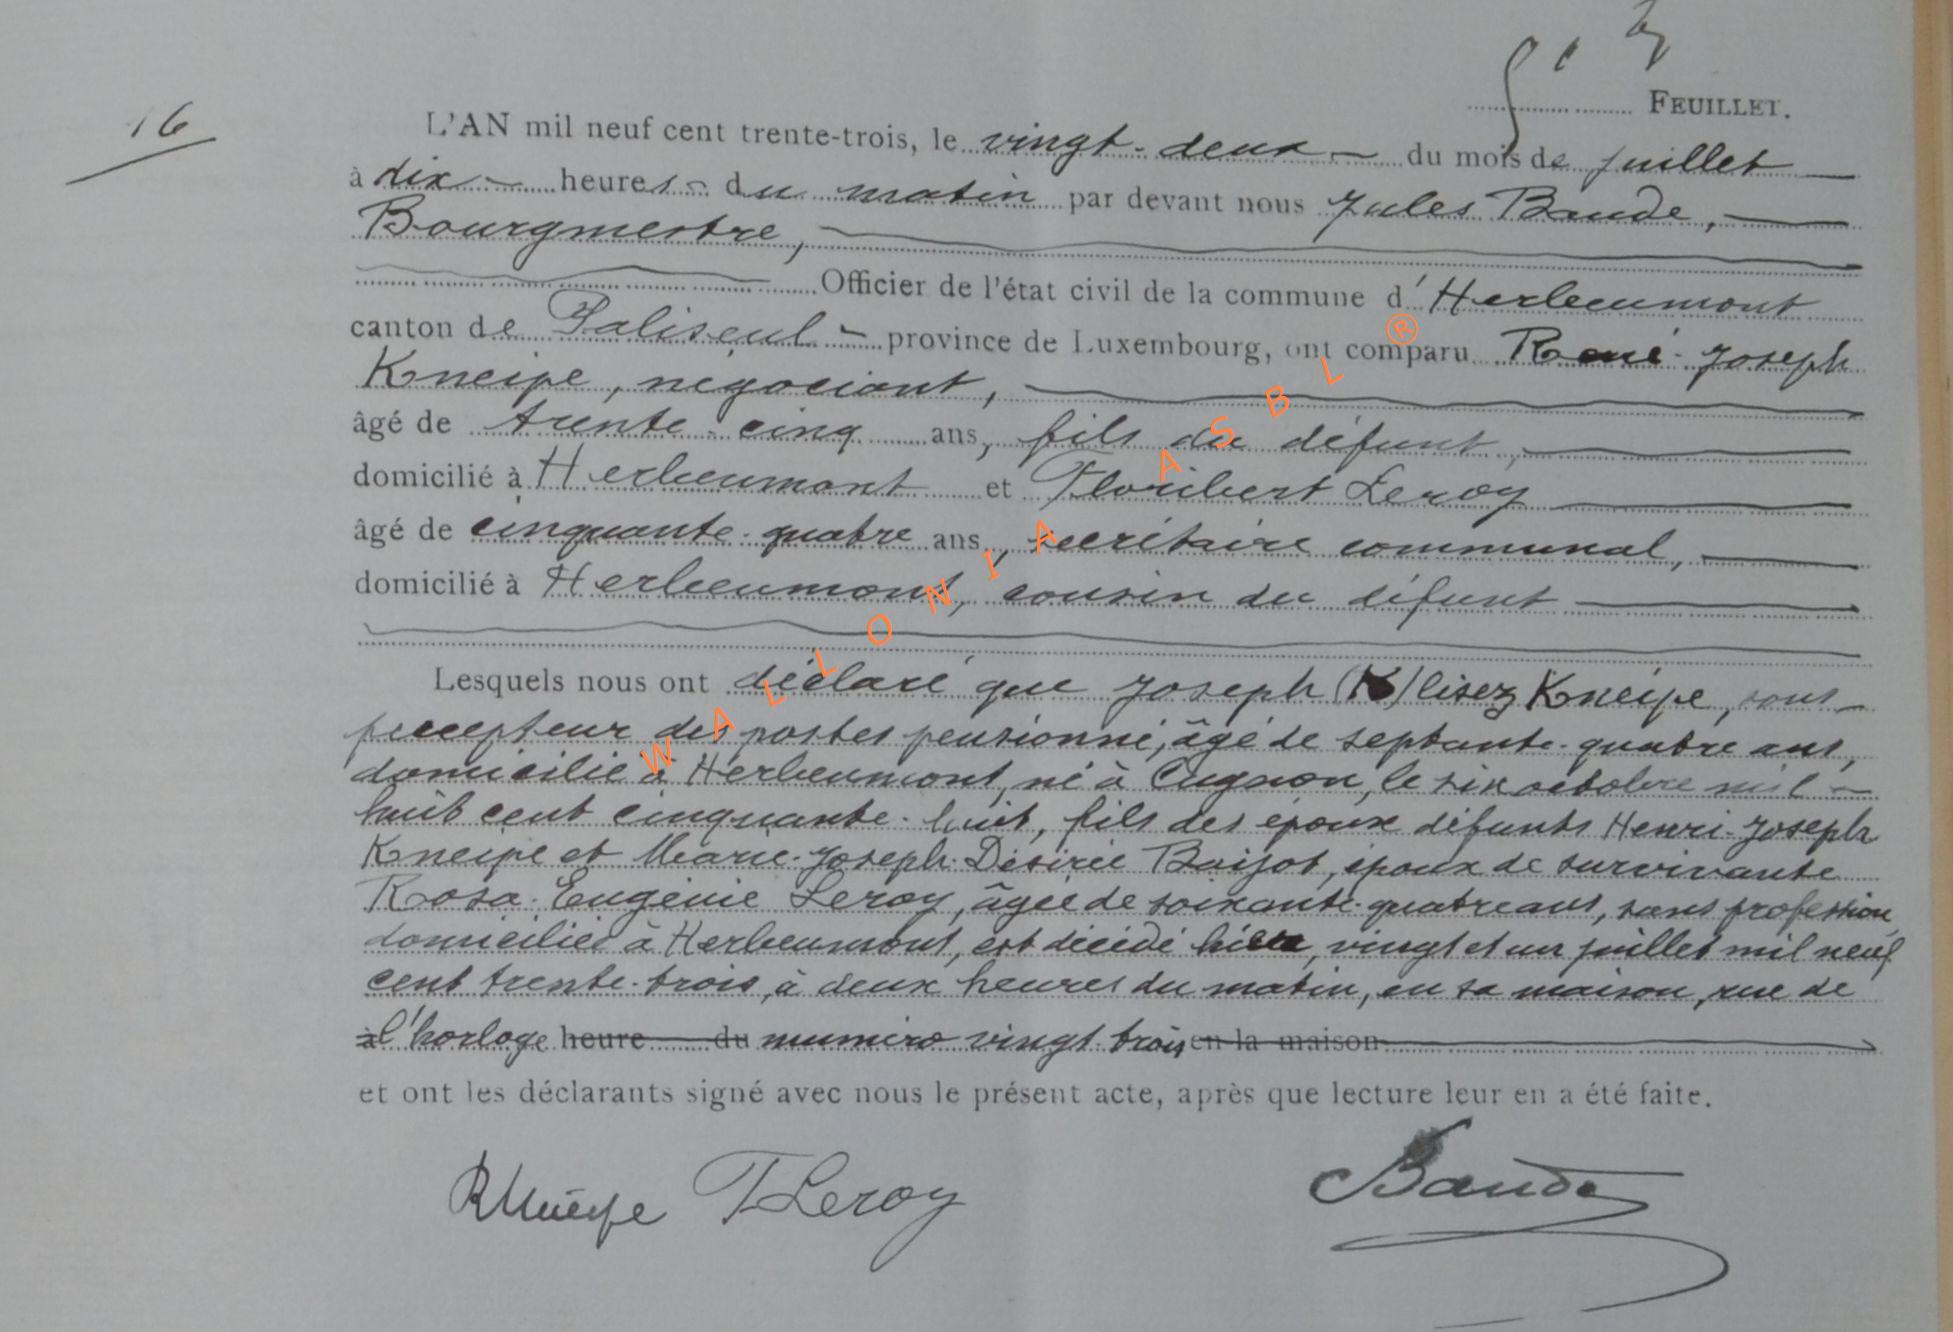 16
FEUILLET.
L'AN mil neuf cent trente-trois, le vingt-deux du mois de juillet
à dix heures du matin par devant nous Jules Baude,
Bourgmestre,
Officier de l'état civil de la commune d'Herbeumont
canton de Paliseul province de Luxembourg, ont comparu René-Joseph
Kneipe, négociant,
âgé de trente-cinq ans, fils du défunt,
domicilié à Herbeumont et Floribert Leroy
âgé de cinquante-quatre ans, secrétaire communal,
domicilié à Herbeumont, cousin du défunt
Lesquels nous ont déclaré que Joseph (K) lisez Kneipe, sous-
percepteur des postes pensionné, âgé de septante-quatre ans,
domicilié à Herbeumont, né à Cugnon, le six octobre mil
huit cent cinquante-huit, fils des époux défunts Henri-Joseph
Kneipe et Marie-Joseph-Désirée Baijot, époux de survivante
Rosa-Eugénie Leroy, âgée de soixante-quatre ans, sans profession,
domiciliée à Herbeumont, est décédé hier, vingt et un juillet mil neuf
cent trente-trois, à deux heures du matin, en sa maison, rue de
à l'horloge heure du numéro vingt-trois en la maison
et ont les déclarants signé avec nous le présent acte, après que lecture leur en a été faite.
RKneipe FLeroy Baude
WALLONIA ASBL ®